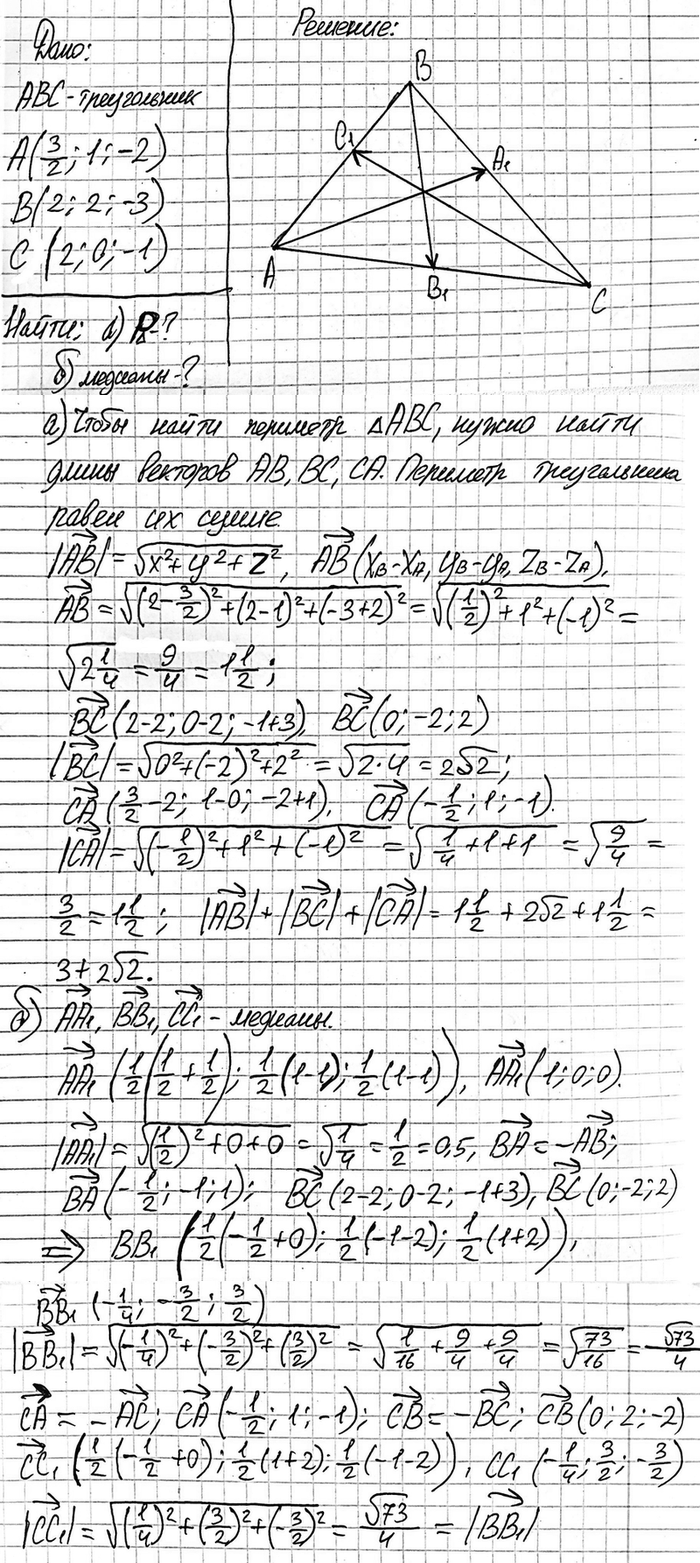 Дано:
ABC - треугольник
A(3/2; 1; -2)
B(2; 2; -3)
C (2; 0; -1)
Найти: а) P-?
б) медианы-?
Решение:
B
C₁
A₁
A
B₁
C
а) Чтобы найти периметр △ABC, нужно найти
длины векторов AB, BC, CA. Периметр треугольника
равен их сумме.
|AB→| = √(x²+y²+z²), AB→(x_B-x_A, y_B-y_A, z_B-z_A).
AB→ = √((2-3/2)²+(2-1)²+(-3+2)²) = √((1/2)²+1²+(-1)²) =
√(2 1/4) = 9/4 = 1 1/2;
BC→(2-2; 0-2; -1+3), BC→(0; -2; 2)
|BC→| = √(0²+(-2)²+2²) = √(2·4) = 2√2;
CA→(3/2-2; 1-0; -2+1), CA→(-1/2; 1; -1).
|CA→| = √((-1/2)²+1²+(-1)²) = √(1/4+1+1) = √(9/4) =
3/2 = 1 1/2; |AB→|+|BC→|+|CA→| = 1 1/2 + 2√2 + 1 1/2 =
3+2√2.
б) AA₁→, BB₁→, CC₁→ - медианы.
AA₁→ (1/2(1/2+1/2); 1/2(1-1); 1/2(1-1)), AA₁→(1; 0; 0).
|AA₁→| = √((1/2)²+0+0) = √(1/4) = 1/2 = 0,5, BA→ = -AB→;
BA→(-1/2; -1; 1); BC→(2-2; 0-2; -1+3), BC→(0; -2; 2)
⇒ BB₁ (1/2(-1/2+0); 1/2(-1-2); 1/2(1+2)),
BB₁→ (-1/4; -3/2; 3/2)
|BB₁→| = √((-1/4)²+(-3/2)²+(3/2)²) = √(1/16+9/4+9/4) = √(73/16) = √73/4
CA→ = -AC→; CA→(-1/2; 1; -1); CB→ = -BC→; CB→(0; 2; -2)
CC₁→ (1/2(-1/2+0); 1/2(1+2); 1/2(-1-2)), CC₁ (-1/4; 3/2; -3/2)
|CC₁→| = √((1/4)²+(3/2)²+(-3/2)²) = √73/4 = |BB₁→|